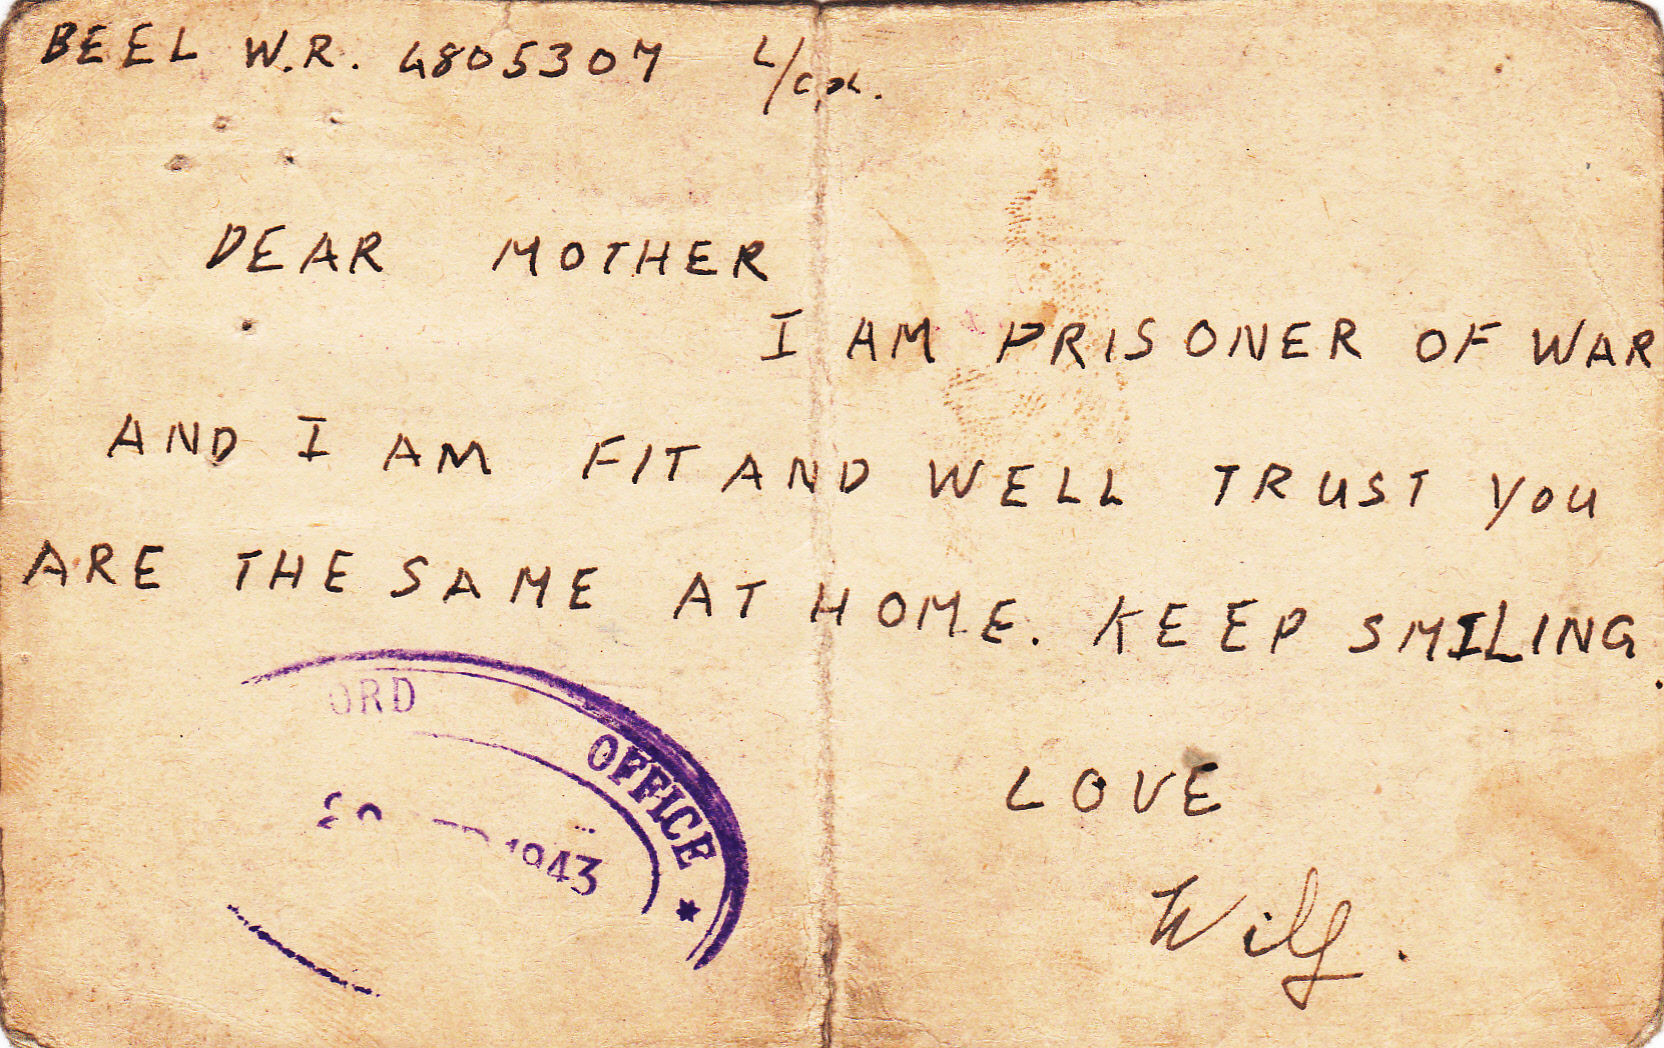 BEEL W.R. 4805307 L/cpl.
DEAR MOTHER
I AM PRISONER OF WAR
AND I AM FIT AND WELL TRUST YOU
ARE THE SAME AT HOME. KEEP SMILING.
LOVE
Wilf.
ORD OFFICE *
1943